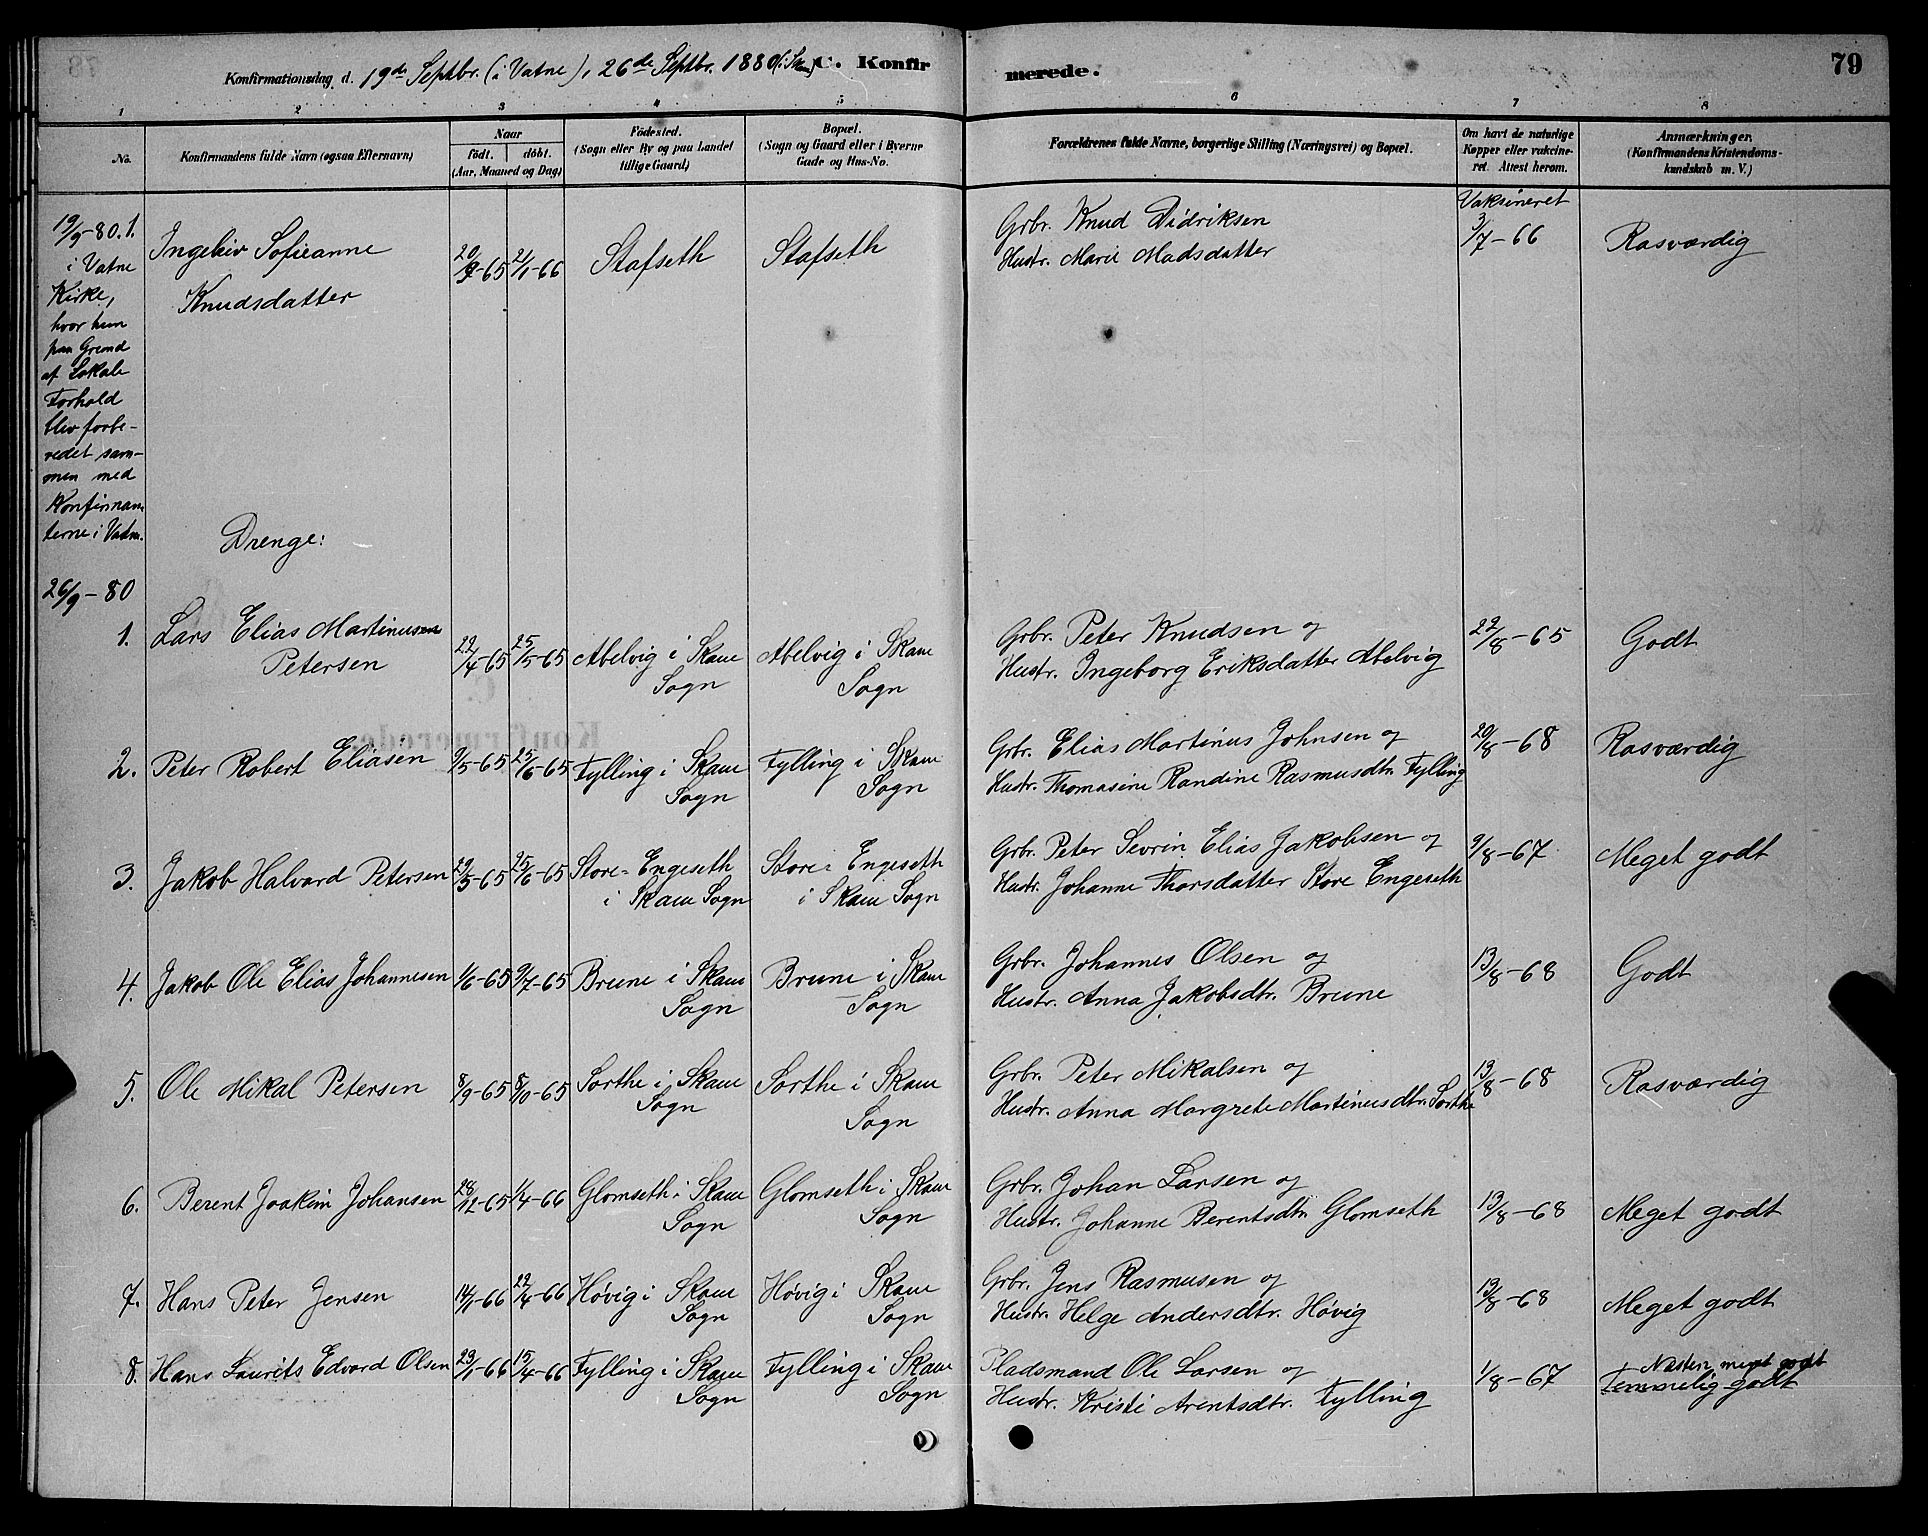 Konfirmationsdag d. 19de Septbr. (i Vatne), 26de Septbr. 1880 C. Konfirmerede. 79
1 2 3 4 5 6 7 8
No.
Konfirmandens fulde Navn (ogsaa Efternavn)
Naar
födt. döbt.
(Aar, Maaned og Dag)
Födested.
(Sogn eller By og paa Landet
tillige Gaard)
Bopæl.
(Sogn og Gaard eller i Byerne
Gade og Hus-No.
Forældrenes fulde Navne, borgerlige Stilling (Næringsvei) og Bopæl.
Om havt de naturlige
Kopper eller vakcine-
ret. Attest herom.
Anmærkninger.
(Konfirmandens Kristendoms-
kundskab m. V.)
19/9-80. 1.
i Vatne
Kirke,
hvor hun
paa Grund
af Lokale
Forhold
blev forbe-
redet sam-
men med
Konfirman-
terne i Vatne.
Ingebiv Sofieanne
Knudsdatter
20/9-65 21/1-66 Stafseth Stafseth
Grbr. Knud Didriksen
Hustr. Marie Madsdatter
Vaksineret
3/7-66 Rasværdig
Drenge:
26/9-80
1. Lars Elias Martinusen
Petersen
22/4-65 25/5-65 Abelvig i Skaue
Sogn
Abelvig i Skaue
Sogn
Grbr. Peter Knudsen og
Hustr. Ingeborg Eriksdatter Abelvig
22/8-65 Godt
2. Peter Robert Eliasen 9/5-65 25/6-65 Fylling i Skaue
Sogn
Fylling i Skaue
Sogn
Grbr. Elias Martinus Johnsen og
Hustr. Thomasine Randine Rasmusdtr. Fylling
20/8-68 Rasværdig
3. Jakob Halvard Petersen 29/5-65 25/6-65 Store-Engeseth
i Skaue Sogn
Store-Engeseth
i Skaue Sogn
Grbr. Peter Sevrin Elias Jakobsen og
Hustr. Johanne Thorsdatter Store Engeseth
9/8-67 Meget godt
4. Jakob Ole Elias Johannesen 1/6-65 9/7-65 Brune i Skaue
Sogn
Brune i Skaue
Sogn
Grbr. Johannes Olsen og
Hustr. Anna Jakobsdtr. Brune
13/8-68 Godt
5. Ole Mikal Petersen 8/9-65 8/10-65 Sorthe i Skaue
Sogn
Sorthe i Skaue
Sogn
Grbr. Peter Mikalsen og
Hustr. Anna Margrete Martinusdtr. Sorthe
13/8-68 Rasværdig
6. Berent Joakim Johansen 28/12-65 1/4-66 Glomseth i Skaue
Sogn
Glomseth i Skaue
Sogn
Grbr. Johan Larsen og
Hustr. Johanne Berentsdtr. Glomseth
13/8-68 Meget godt
7. Hans Peter Jensen 14/1-66 22/4-66 Høvig i Skaue
Sogn
Høvig i Skaue
Sogn
Grbr. Jens Rasmusen og
Hustr. Helge Andersdtr. Høvig
13/8-68 Meget godt
8. Hans Laurits Edvard Olsen 23/1-66 15/4-66 Fylling i Skaue
Sogn
Fylling i Skaue
Sogn
Pladsmand Ole Larsen og
Hustr. Kristi Arentsdtr. Fylling
1/8-67 Næsten meget godt
Temmelig godt